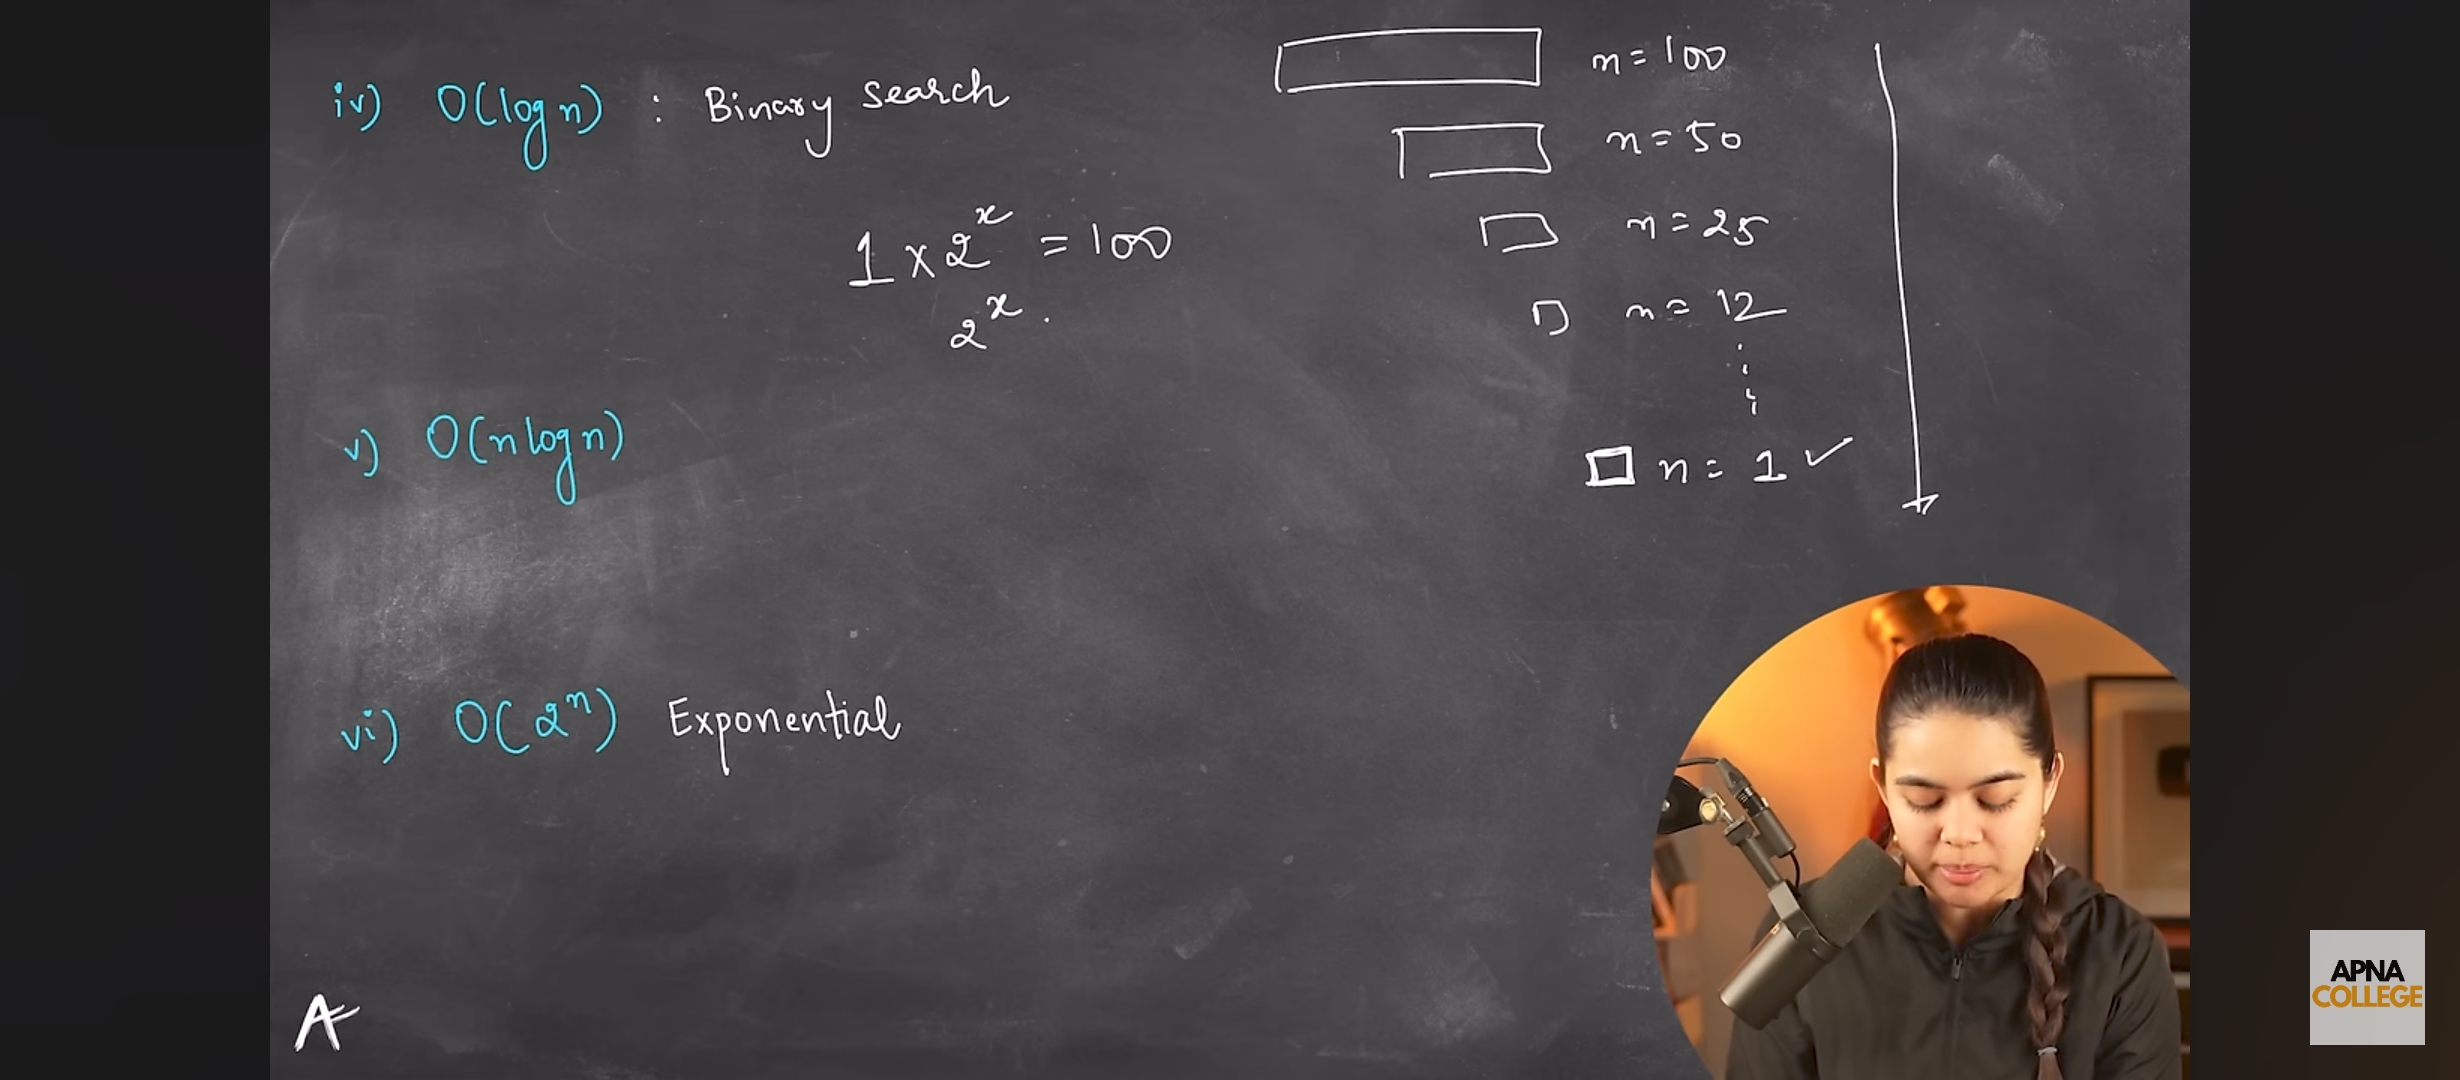 iv) O(log n) : Binary search
1 x 2^x = 100
2^x .
n = 100
n = 50
n = 25
n = 12
n = 1 ✓
v) O(n log n)
vi) O(2^n) Exponential
A
APNA
COLLEGE